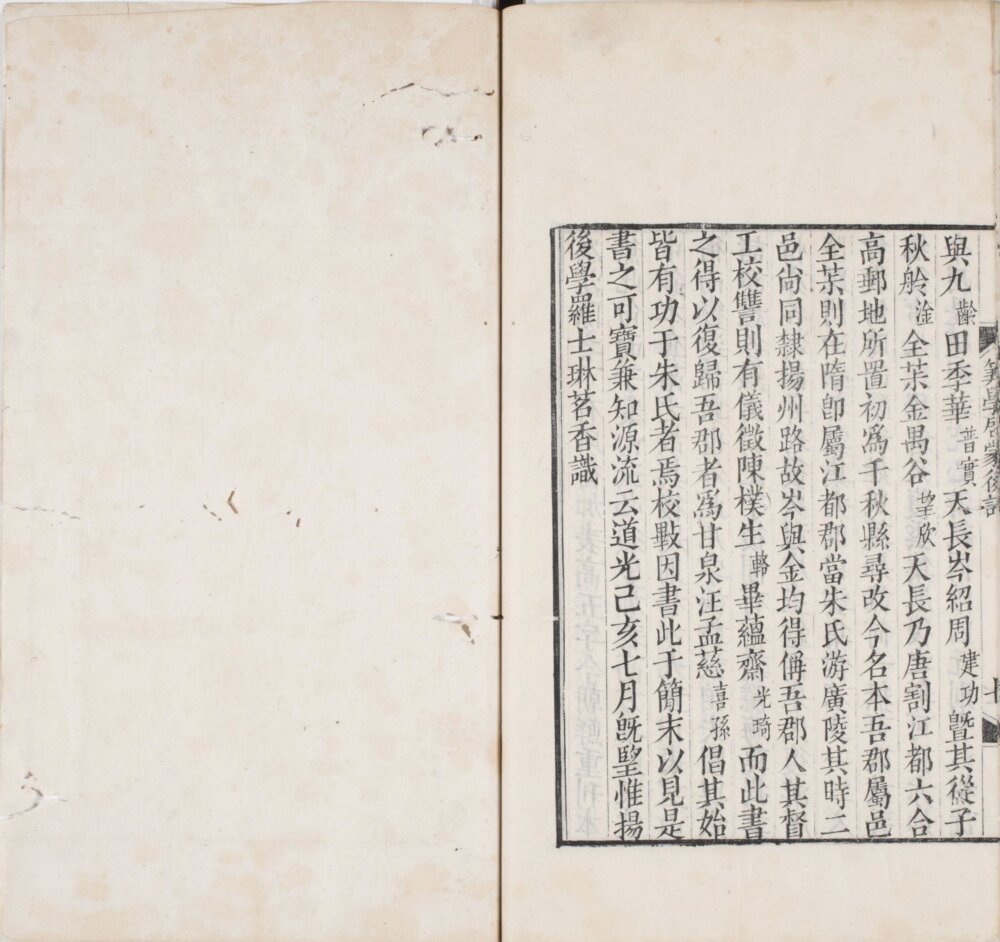 算學啓蒙後記
與九齡田季華普實天長岑紹周建功曁其從子
秋舲淦全茮金禺谷望欣天長乃唐割江都六合
高郵地所置初爲千秋縣尋改今名本吾郡屬邑
全茮則在隋卽屬江都郡當朱氏游廣陵其時二
邑尙同隸揚州路故岑與金均得偁吾郡人其督
工校讐則有儀徵陳樸生輅畢蘊齋光琦而此書
之得以復歸吾郡者爲甘泉汪孟慈喜孫倡其始
皆有功于朱氏者焉校斁因書此于簡末以見是
書之可寶兼知源流云道光己亥七月旣朢惟揚
後學羅士琳茗香識